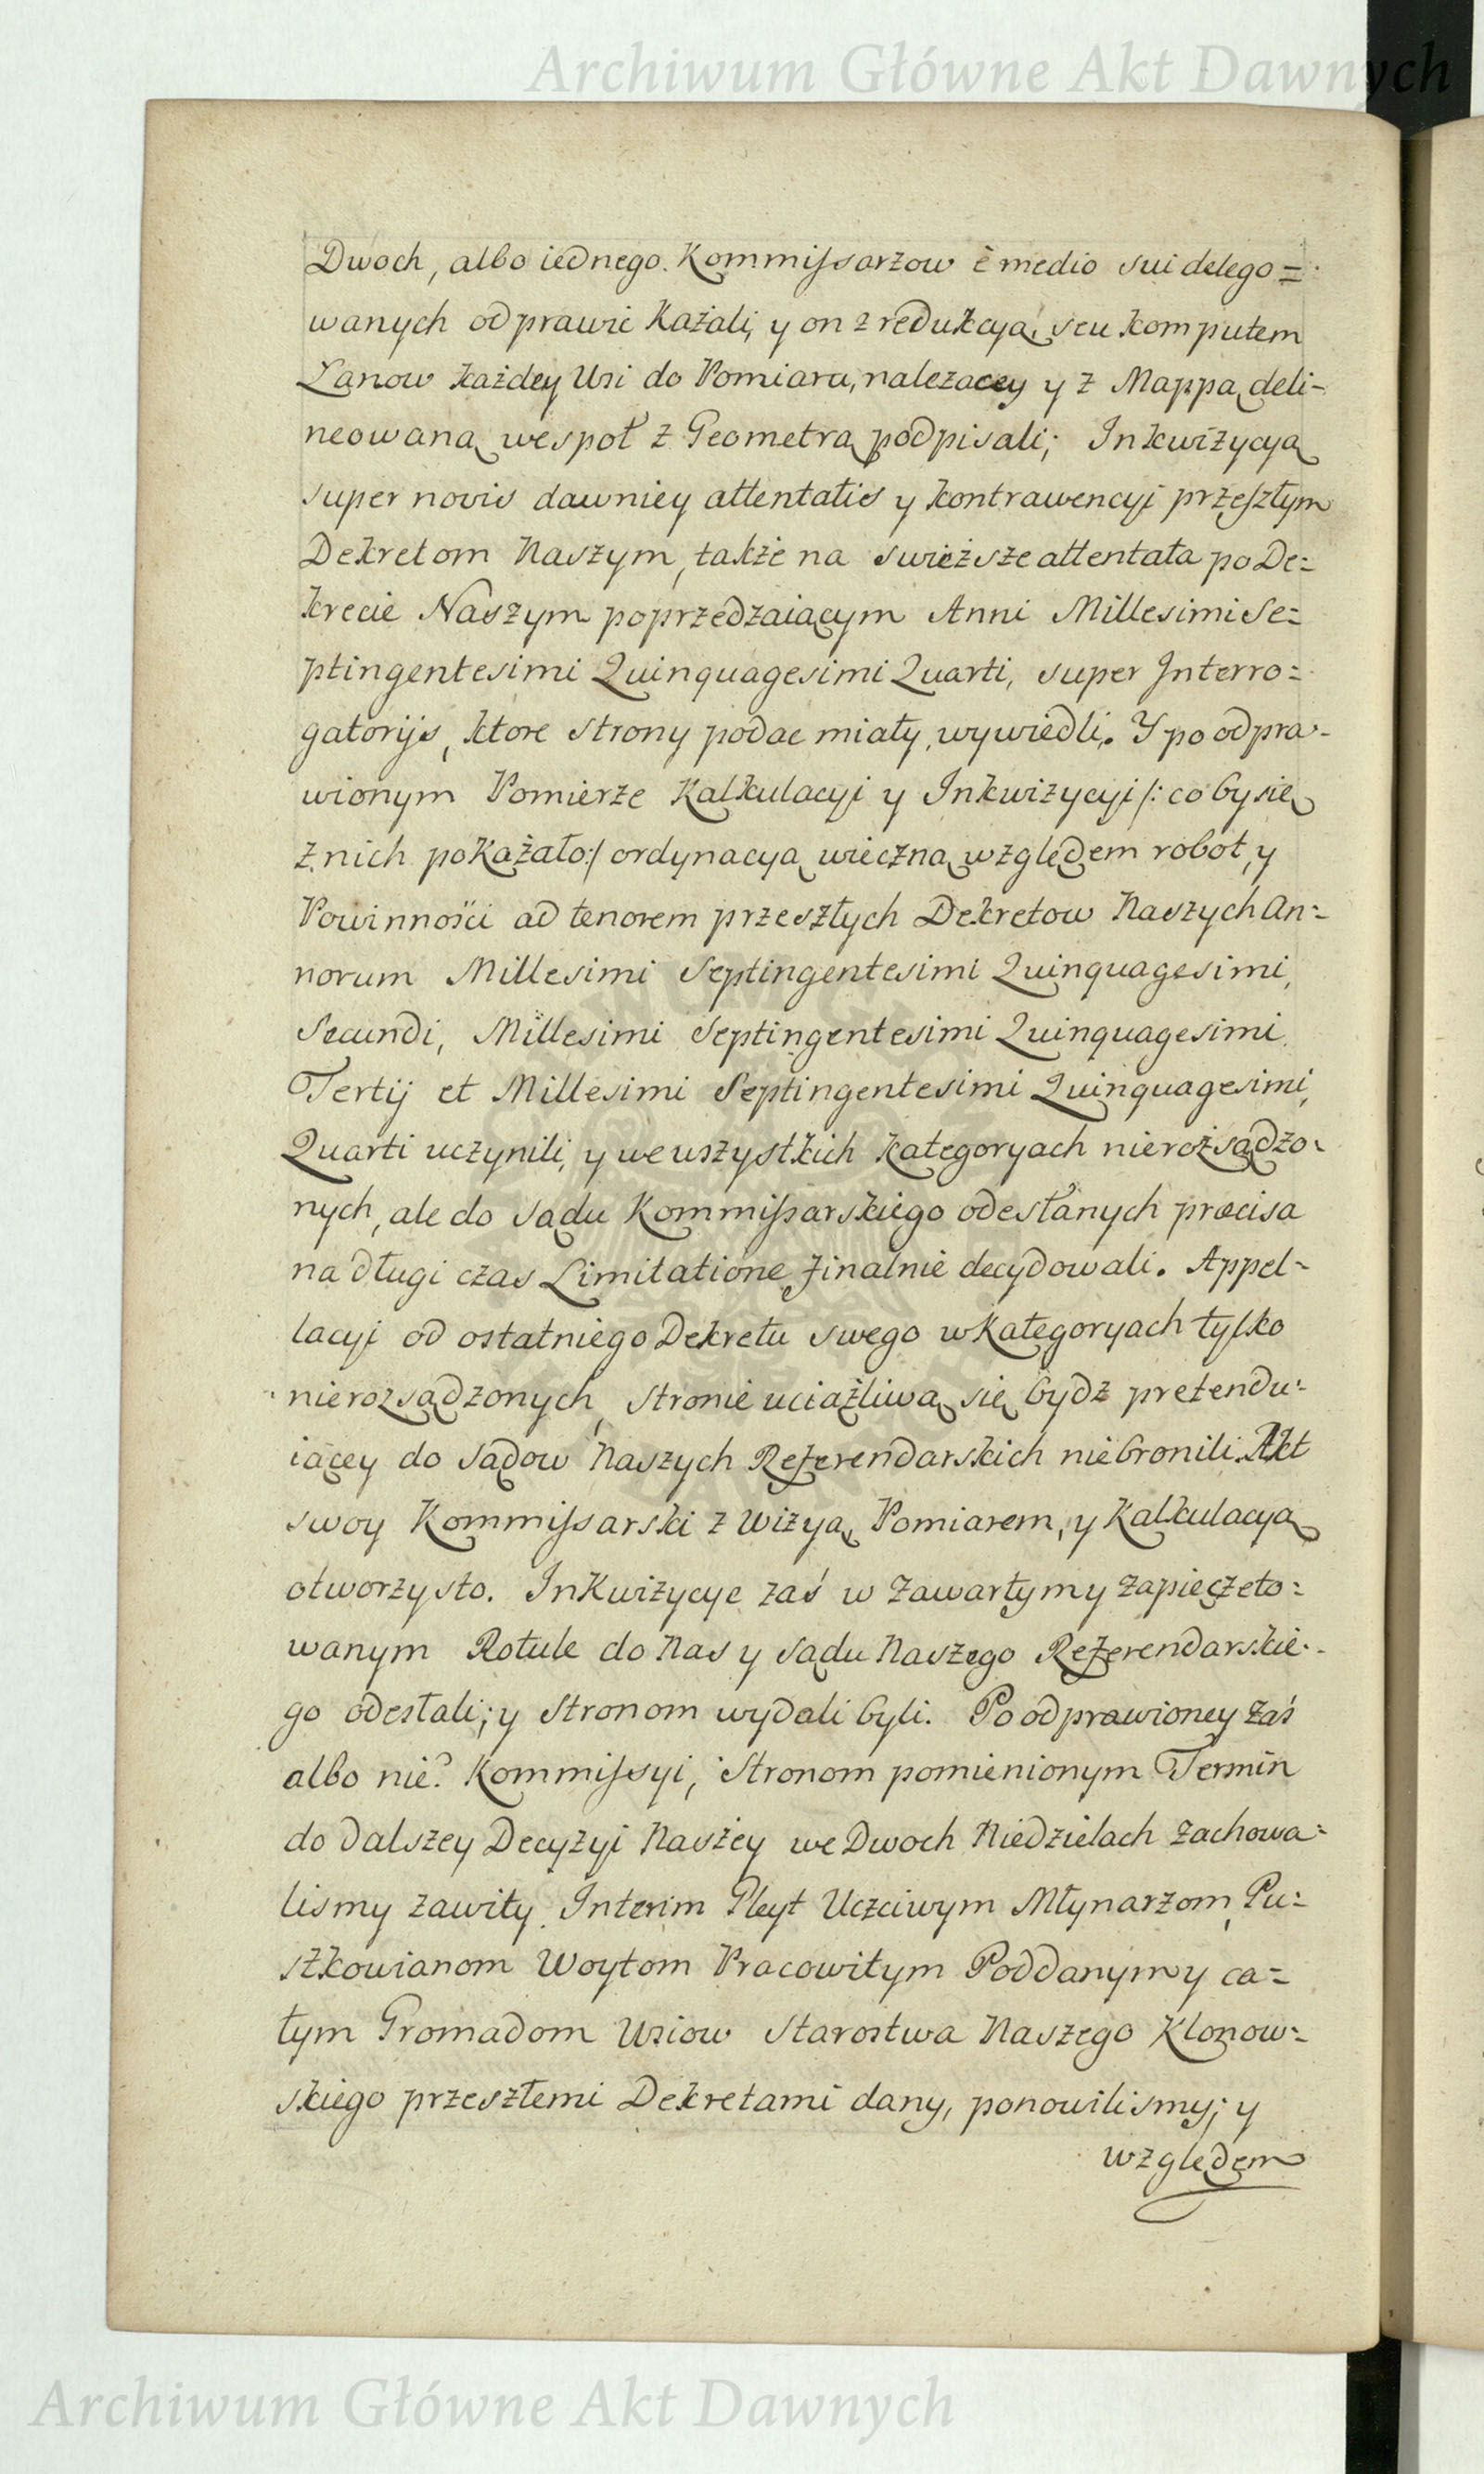 Archiwum Główne Akt Dawnych
Dwoch, albo iednego. Kommissarzow è medio sui delego=
wanych odprawić Każali, y on z redukcyą, seu komputem
Łanow każdey Wsi do Pomiaru, należącey y z Mappą deli-
neowaną wespoł z Geometrą podpisali; Inkwizycyą
super novis dawniey attentatis y kontrawencyi przeszłym
Dekretom Naszym, także na swieższe attentata po De=
krecie Naszym poprzedzaiącym Anni Millesimi Se=
ptingentesimi Quinquagesimi Quarti, super Interro=
gatorijs, ktore strony podac miały, wywiedli. Y po odpra-
wionym Pomierze Kalkulacyi y Inkwizycyi /: co by się
z nich pokażało :/ ordynacyą wieczną względem robot, y
Powinności ad tenorem przeszłych Dekretow Naszych An=
norum Millesimi Septingentesimi Quinquagesimi,
Secundi, Millesimi Septingentesimi Quinquagesimi
Tertij et Millesimi Septingentesimi Quinquagesimi,
Quarti uczynili, y we wszystkich kategoryach nierozsądzo-
nych, ale do sądu Kommissarskiego odesłanych præcisa
na długi czas Limitatione finalnie decydowali. Appel-
lacyi od ostatniego Dekretu swego w Kategoryach tylko
nierozsądzonych, stronie uciążliwą się bydz pretendu-
iącey do sądow Naszych Referendarskich nie bronili. Akt
swoy Kommissarski z Wizyą, Pomiarem, y Kalkulacyą
otworzysto. Inkwizycye zaś w Zawartym y zapieczęto=
wanym Rotule do Nas y sądu Naszego Referendarskie-
go odesłali; y Stronom wydali byli. Po odprawioney zaś
albo nie? Kommissyi, Stronom pomienionym Termin
do dalszey Decyzyi Naszey we Dwoch Niedzielach zachowa=
lismy zawity. Interim Gleyt Uczciwym Młynarzom, Pu=
stkowianom Woytom Pracowitym Poddanym y ca=
łym Gromadom Wsiow Starostwa Naszego Klonow=
skiego przeszłemi Dekretami dany, ponowilismy; y
względem
Archiwum Główne Akt Dawnych